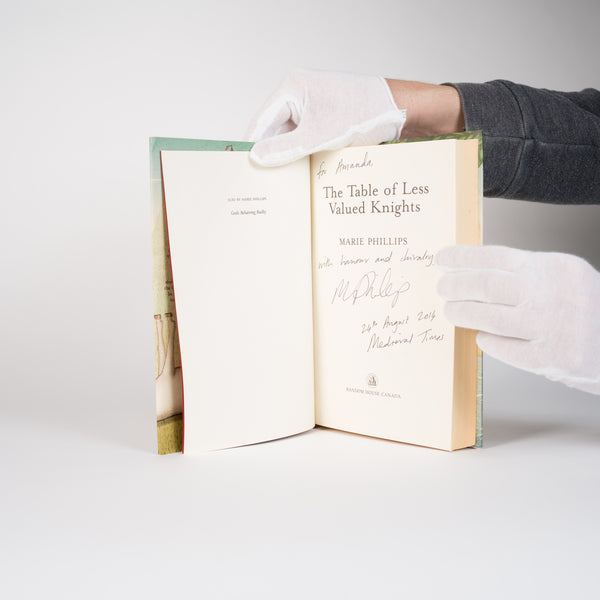 ALSO BY MARIE PHILLIPS
Gods Behaving Badly
for Amanda,
The Table of Less
Valued Knights
MARIE PHILLIPS
with honour and chivalry
M Phillips
24th August 2014
Medieval Times
RANDOM HOUSE CANADA